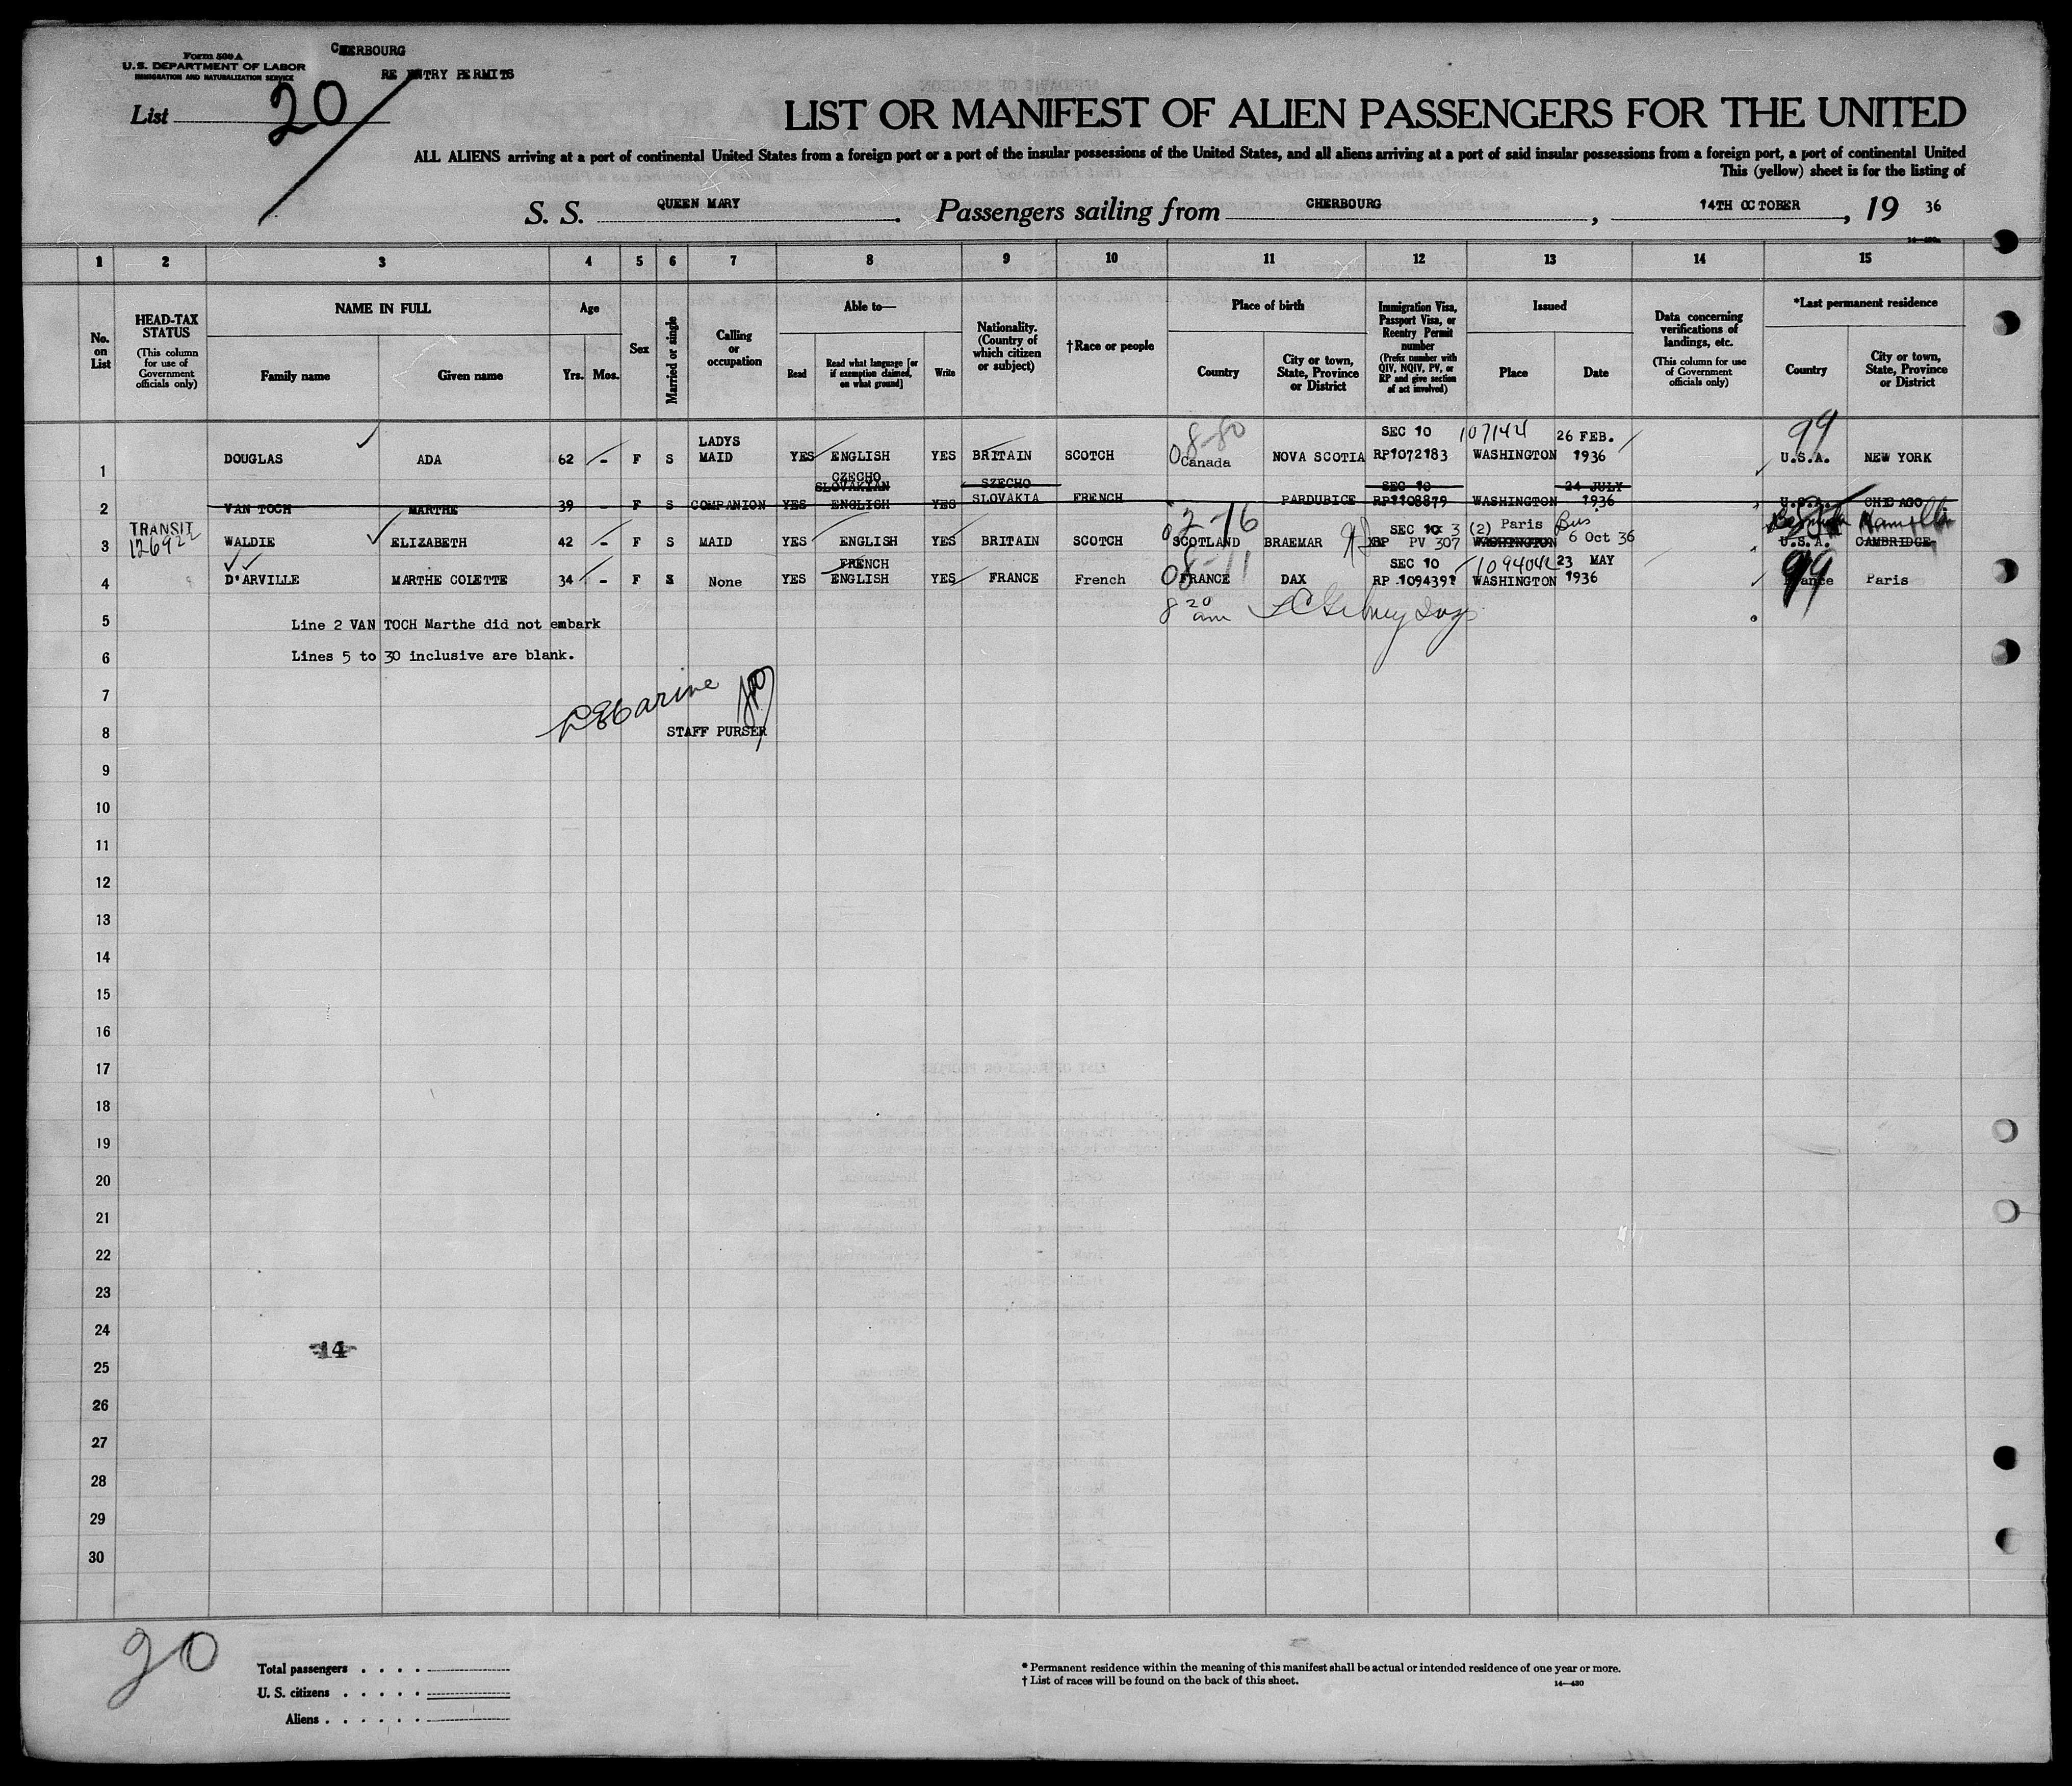 CHERBOURG
Form 500 A
U.S. DEPARTMENT OF LABOR
IMMIGRATION AND NATURALIZATION SERVICE
RE ENTRY PERMITS
List 20
LIST OR MANIFEST OF ALIEN PASSENGERS FOR THE UNITED
ALL ALIENS arriving at a port of continental United States from a foreign port or a port of the insular possessions of the United States, and all aliens arriving at a port of said insular possessions from a foreign port, a port of continental United
This (yellow) sheet is for the listing of
S. S. QUEEN MARY. Passengers sailing from CHERBOURG, 14TH OCTOBER, 19 36
1 2 3 4 5 6 7 8 9 10 11 12 13 14 15
No. on List
HEAD-TAX STATUS
(This column for use of Government officials only)
NAME IN FULL
Family name
Given name
Age
Yrs. Mos.
Sex
Married or single
Calling or occupation
Able to—
Read
Read what language [or if exemption claimed, on what ground]
Write
Nationality. (Country of which citizen or subject)
†Race or people
Place of birth
Country
City or town, State, Province or District
Immigration Visa, Passport Visa, or Reentry Permit number
(Prefix number with QIV, NQIV, PV, or RP and give section of act involved)
Issued
Place
Date
Data concerning verifications of landings, etc.
(This column for use of Government officials only)
*Last permanent residence
Country
City or town, State, Province or District
LADYS 8-80 SEC 10 107144 26 FEB. 99
1 DOUGLAS ADA 62 - F S MAID YES ENGLISH YES BRITAIN SCOTCH Canada NOVA SCOTIA RP1072183 WASHINGTON 1936 U.S.A. NEW YORK
CZECHO SLOVAKIAN SZECHO SEC 10 24 JULY
2 VAN TOCH MARTHE 39 - F S COMPANION YES ENGLISH YES SLOVAKIA FRENCH PARDUBICE RP1108879 WASHINGTON 1936 U.S.A. CHICAGO
TRANSIT 2-16 SEC 3 (2) Paris Bus
3 WALDIE ELIZABETH 42 - F S MAID YES ENGLISH YES BRITAIN SCOTCH SCOTLAND BRAEMAR RP PV 307 WASHINGTON 6 Oct 36 U.S.A. CAMBRIDGE
FRENCH 8-11 SEC 10 23 MAY 99
4 D'ARVILLE MARTHE COLETTE 34 - F S None YES ENGLISH YES FRANCE French FRANCE DAX RP WASHINGTON 1936 France Paris
8 20 am
5 Line 2 VAN TOCH Marthe did not embark
6 Lines 5 to 30 inclusive are blank.
7
8 STAFF PURSER
9
10
11
12
13
14
15
16
17
18
19
20
21
22
23
24
14
25
26
27
28
29
30
20
Total passengers
U. S. citizens
Aliens
* Permanent residence within the meaning of this manifest shall be actual or intended residence of one year or more.
† List of races will be found on the back of this sheet.
14—430